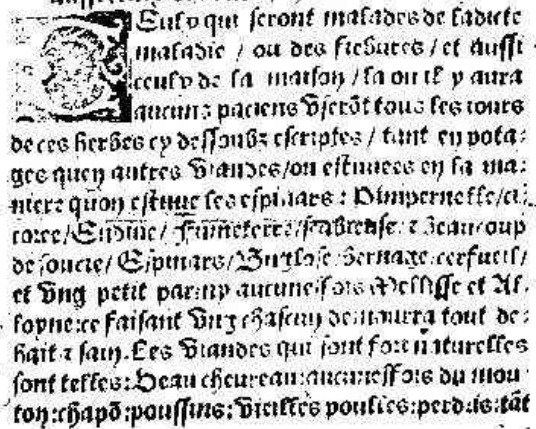 Ceulx qui seront malades de ladicte
maladie / ou des fiebures / et aussi
ceulx de la maison / la ou il y aura
aucuns paciens Vserõt tous les iours
de ces herbes cy dessoubz escriptes / tant en pota-
ges quen autres Viandes / ou estuuees en la ma-
niere quon estuue les espinars : Pimpernelle / ci
coree / Endiue / Fumeterre / scabieuse : z beaucoup
de soucie / Espinars / Buglose : bernage : cerfueil /
et Vng petit parmy aucunesfois Mellisse et Al-
loyne : ce faisant Vng chascun demourra tout de-
hait z sain. Les Viandes qui sont fort naturelles
sont telles : Veau cheureau : aucunesfois du mou
ton : chapõ : poussins : Vieilles poulles : perdris : tãt